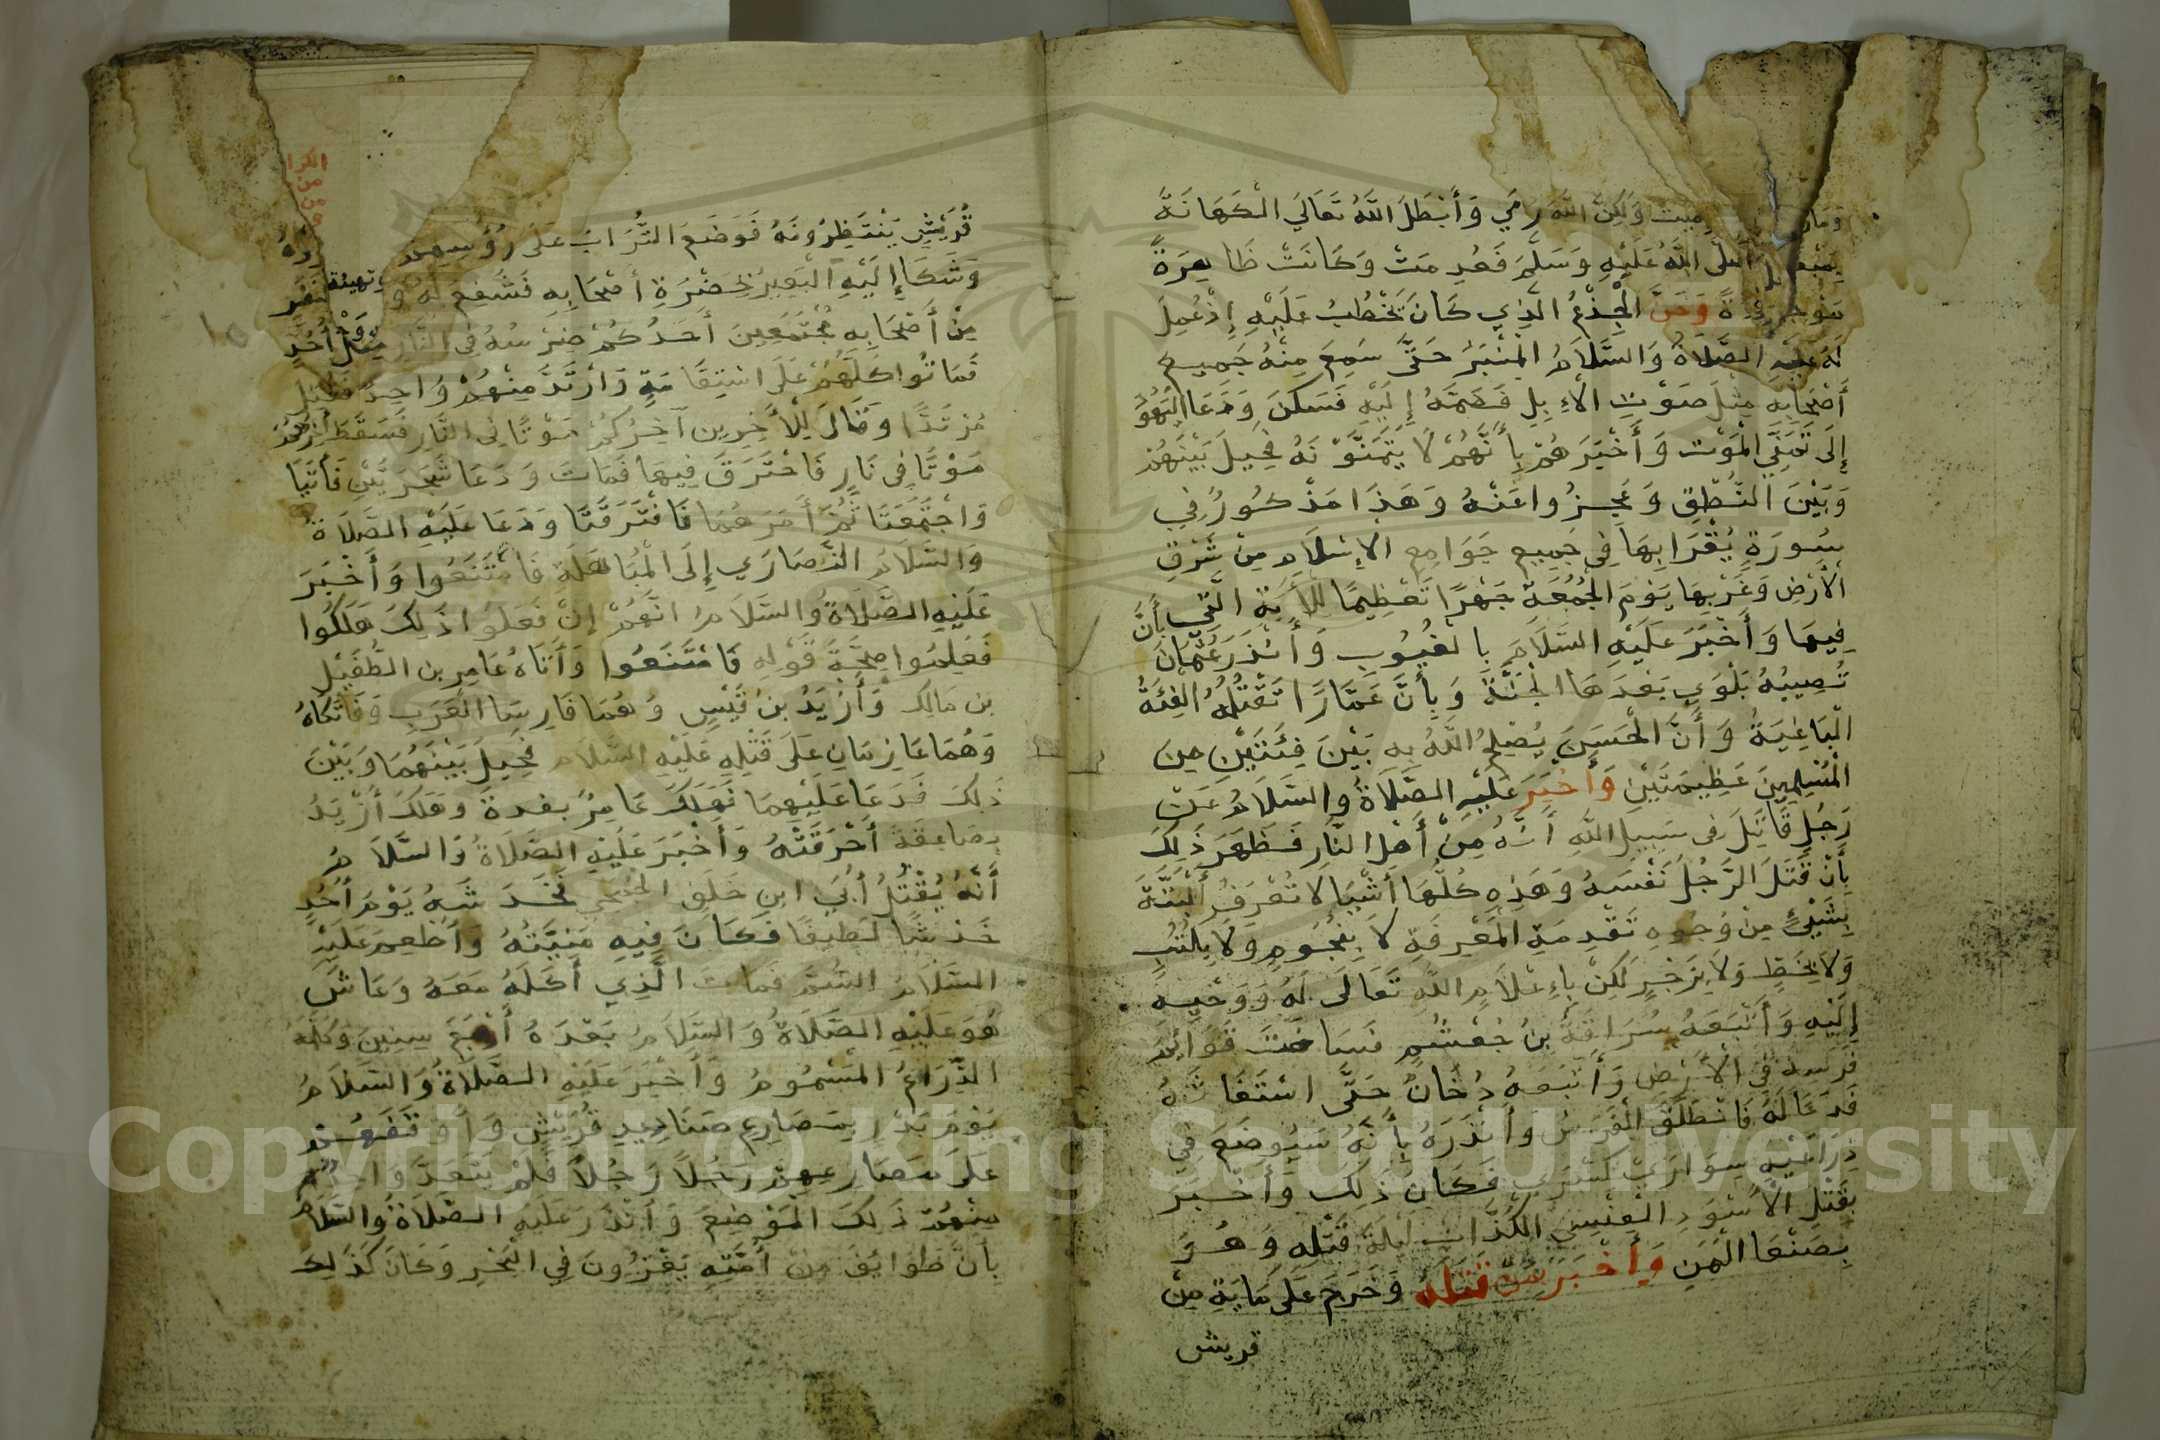 وَمَا رميت وَلَكِنَّ اللَّهَ رَمَي وَأَبْطَلَ اللَّهُ تَعَالَي الْكَهَانَةَ
صَلَّى اللَّهُ عَلَيْهِ وَسَلَّمَ فَعُدِ مَتْ وَكَانَتْ ظَاهِرَةً
مَوْجُودَةً وَحَنَّ الْجِذْعُ الَّذِي كَانَ يَخْطُبُ عَلَيْهِ إِذْ عُمِلَ
لَهُ عَلَيْهِ الصَّلَاةُ وَالسَّلَامُ الْمِنْبَرُ حَتَّى سَمِعَ مِنْهُ جَمِيع
أَصْحَابِهِ مِثْلَ صَوْتِ الْإِبِلِ فَضَمَّهُ إِلَيْهِ فَسَكَنَ وَدَعَا الْيَهُودَ
إِلَى تَمَنِّي الْمَوْتِ وَأَخْبَرَهُمْ بِأَنَّهُمْ لَا يَتَمَنَّوْنَهُ فَحِيلَ بَيْنَهُمْ
وَبَيْنَ النُّطْقِ وَعَجَزُوا عَنْهُ وَهَذَا مَذْكُورٌ فِي
سُورَةٍ يُقْرَا بِهَا فِي جَمِيعِ جَوَامِعِ الإِسْلَامِ مِنْ شَرْقِ
الْأَرْضِ وَغَرْبِهَا يَوْمَ الْجُمُعَةِ جَهْرًا تَعْظِيمًا لِلْآيَةِ الَّتِي
فِيهَا وَأَخْبَرَ عَلَيْهِ السَّلَامُ بِالْغُيُوبِ وَأَنْذَرَ عُثْمَانَ بِأَنَّ
تُصِيبُهُ بَلْوَي بَعْدَهَا الْجَنَّةُ وَبِأَنَّ عَمَّارًا تَقْتُلُهُ الْفِئَةُ
الْبَاغِيَةُ وَأَنَّ الْحَسَنَ يُصْلِحُ اللَّهُ بِهِ بَيْنَ فِئَتَيْنِ مِنَ
الْمُسْلِمِينَ عَظِيمَتَيْنِ وَأَخْبَرَ عَلَيْهِ الصَّلَاةُ وَالسَّلَامُ عَنْ
رَجُلٍ قَاتَلَ فِي سَبِيلِ اللَّهِ أَنَّهُ مِنْ أَهْلِ النَّارِ فَظَهَرَ ذَلِكَ
بِأَنْ قَتَلَ الرَّجُلُ نَفْسَهُ وَهَذِهِ كُلُّهَا أَشْيَا لَا تُعْرَفُ أَلْبَتَّةَ
بِشَيْءٍ مِنْ وُجُوهِ تَقْدِمَةِ الْمَعْرِفَةِ لَا بِنُجُومٍ وَلَا بِكَتِفٍ
وَلَا بِخَطٍّ وَلَا بِزَجْرٍ لَكِنْ بِإِعْلَامِ اللَّهِ تَعَالَى لَهُ وَوَحْيِهِ
إِلَيْهِ وَأَتْبَعَهُ سُرَاقَةُ بْنُ جُعْشُمٍ فَسَاخَتْ قَوَائِمُ
فَرَسِهِ فِي الْأَرْضِ وَأَتْبَعَهُ دُخَانٌ حَتَّى اسْتَغَاثَهُ
فَدَعَا لَهُ فَانْطَلَقَ الْفَرَسُ وَأَنْذَرَهُ بِأَنَّهُ سَيُوضَعُ فِي
ذِرَاعَيْهِ سِوَارَيْ كَسْرَي فَكَانَ ذَلِكَ وَأَخْبَرَ
بِقَتْلِ الْأَسْوَدِ الْعَنْسِي الْكَذَّابِ لَيْلَةَ قَتْلِهِ وَهُوَ
بِصَنْعَا الْيَمَنِ وَأَخْبَرَ بِمَنْ قَتَلَهُ وَخَرَجَ عَلَى مَايَةٍ مِنْ
قريش
قُرَيْشٍ يَنْتَظِرُونَهُ فَوَضَعَ التُّرَابَ عَلَى رُؤُسِهِمْ
وَشَكَا إِلَيْهِ الْبَعِيرُ بِحَضْرَةِ أَصْحَابِهِ فَشَفَعَ لَهُ
مِنْ أَصْحَابِهِ مُجْتَمِعِينَ أَحَدُكُمْ ضِرْسُهُ فِي النَّارِ مِثْلُ أُحُدٍ
فَمَاتُوا كُلُّهُمْ عَلَى اسْتِقَامَةٍ وَارْتَدَّ مِنْهُمْ وَاحِدٌ فَقُتِلَ
مُرْتَدًّا وَقَالَ لِلْآخِرِينَ آخِرُكُمْ مَوْتًا فِي النَّارِ فَسَقَطَ آخِرُهُمْ
مَوْتًا فِي نَارٍ فَاحْتَرَقَ فِيهَا فَمَاتَ وَدَعَا شَجَرَتَيْنِ فَأَتَيَا
وَاجْتَمَعَتَا ثُمَّ أَمَرَهُمَا فَافْتَرَقَتَا وَدَعَا عَلَيْهِ الصَّلَاةُ
وَالسَّلَامُ النَّصَارَي إِلَى الْمُبَاهَلَةِ فَامْتَنَعُوا وَأَخْبَرَ
عَلَيْهِ الصَّلَاةُ وَالسَّلَامُ انَّهُمْ إِنْ فَعَلُوا ذَلِكَ هَلَكُوا
فَعَلِمُوا صِحَّةَ قَوْلِهِ فَامْتَنَعُوا وَأَتَاهُ عَامِرِ بن الطُّفَيْلِ
بن مَالِكٍ وَأَرْبَدُ بْنُ قَيْسٍ وَهُمَا فَارِسَا الْعَرَبِ وَفَاتِكَاهُ
وَهُمَا عَازِمَانِ عَلَى قَتْلِهِ عَلَيْهِ السَّلَام فَحِيلَ بَيْنَهُمَا وَبَيْنَ
ذَلِكَ فَدَعَا عَلَيْهِمَا فَهَلَكَ عَامِرٌ بغدةٍ وَهَلَكَ أَرْبَدُ
بِصَاعِقَةٍ أَحْرَقَتْهُ وَأَخْبَرَ عَلَيْهِ الصَّلَاةُ وَالسَّلَامُ
أَنَّهُ يَقْتُلُ أُبَي ابن خَلَفٍ الْجُمَحِي فَخَدَشَهُ يَوْمَ أُحُدٍ
خَدْشًا لَطِيفًا فَكَانَ فِيهِ مَنِيَّتُهُ وَأُطْعِمَ عَلَيْهِ
السَّلَامُ السُّمَّ فَمَاتَ الَّذِي أَكَلَهُ مَعَهُ وَعَاشَ
هُوَ عَلَيْهِ الصَّلَاةُ وَالسَّلَامُ بَعْدَهُ أَرْبَعَ سِنِينَ وَكَلَّمَهُ
الذِّرَاعُ الْمَسْمُومُ وَأَخْبَرَ عَلَيْهِ الصَّلَاةُ وَالسَّلَامُ
يَوْمَ بَدْرٍ بِمَصَارِعِ صَنَادِيدِ قُرَيْشٍ وَأَوْقَفَهُمْ
عَلَى مَصَارِعِهِمْ رَجُلًا رَجُلًا فَلَمْ يَتَعَدَّ وَاحِدٌ
مِنْهُمْ ذَلِكَ الْمَوْضِعَ وَأَنْذَرَ عَلَيْهِ الصَّلَاةُ وَالسَّلَامُ
بِأَنَّ طَوَايِفَ مِنْ أُمَّتِهِ يَغْزُونَ فِي الْبَحْرِ وَكَانَ كَذَلِكَ
Copyright © King Saud University